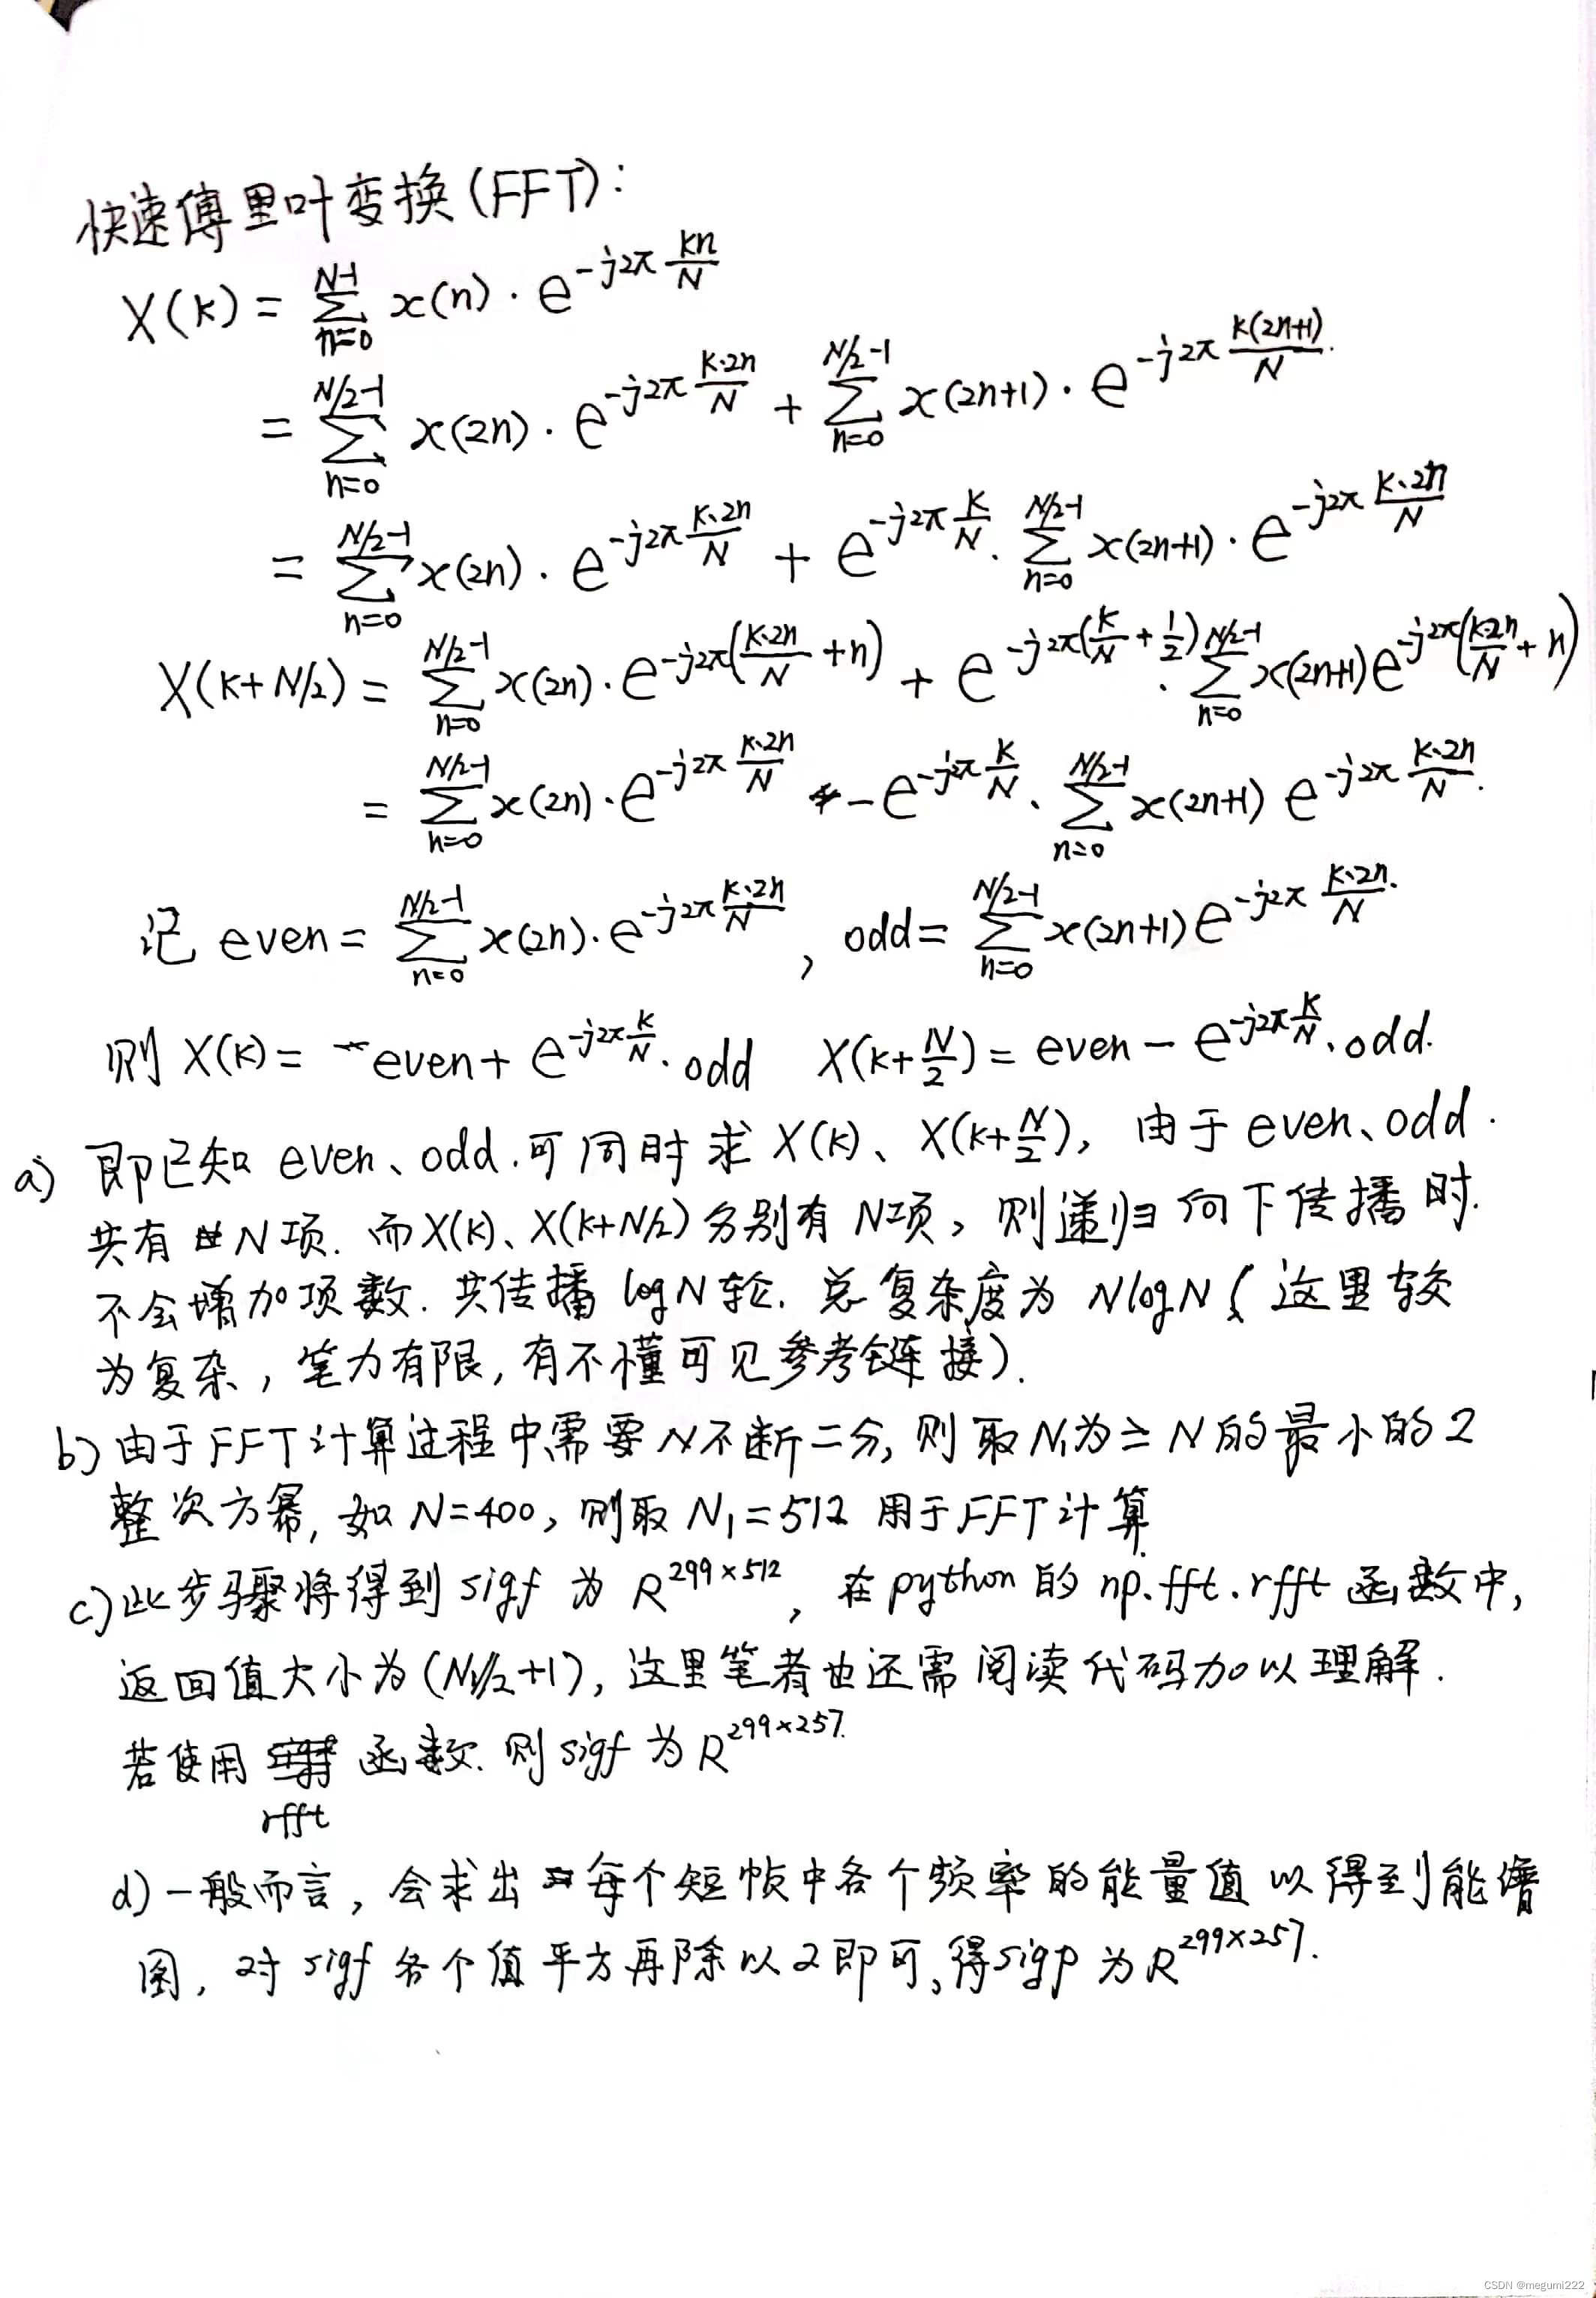 快速傅里叶变换(FFT):
X(k) = \sum_{n=0}^{N-1} x(n)·e^{-j2π\frac{kn}{N}}
= \sum_{n=0}^{N/2-1} x(2n)·e^{-j2π\frac{k·2n}{N}} + \sum_{n=0}^{N/2-1} x(2n+1)·e^{-j2π\frac{k(2n+1)}{N}}.
= \sum_{n=0}^{N/2-1} x(2n)·e^{-j2π\frac{k·2n}{N}} + e^{-j2π\frac{k}{N}}·\sum_{n=0}^{N/2-1} x(2n+1)·e^{-j2π\frac{k·2n}{N}}
X(k+N/2) = \sum_{n=0}^{N/2-1} x(2n)·e^{-j2π(\frac{k·2n}{N}+n)} + e^{-j2π(\frac{k}{N}+\frac{1}{2})}·\sum_{n=0}^{N/2-1} x(2n+1)e^{-j2π(\frac{k·2n}{N}+n)}
= \sum_{n=0}^{N/2-1} x(2n)·e^{-j2π\frac{k·2n}{N}} - e^{-j2π\frac{k}{N}}·\sum_{n=0}^{N/2-1} x(2n+1) e^{-j2π\frac{k·2n}{N}}.
记 even = \sum_{n=0}^{N/2-1} x(2n)·e^{-j2π\frac{k·2n}{N}}, odd = \sum_{n=0}^{N/2-1} x(2n+1)e^{-j2π\frac{k·2n}{N}}.
则 X(k) = even + e^{-j2π\frac{k}{N}}·odd X(k+\frac{N}{2}) = even - e^{-j2π\frac{k}{N}}·odd.
a) 即已知 even、odd.可同时求 X(k)、X(k+\frac{N}{2}), 由于 even、odd.
共有 N项. 而X(k)、X(k+N/2)分别有 N项, 则递归向下传播时.
不会增加项数. 共传播 logN轮. 总复杂度为 NlogN (这里较
为复杂, 笔力有限, 有不懂可见参考链接).
b) 由于FFT计算过程中需要N不断二分, 则取N₁为≥N的最小的2
整次方幂, 如N=400, 则取 N₁=512 用于FFT计算.
c) 此步骤将得到 sigf 为 R^{299×512}, 在python的 np.fft.rfft 函数中,
返回值大小为(N₁/2+1), 这里笔者也还需阅读代码加以理解.
若使用 函数. 则 sigf 为 R^{299×257}.
rfft
d) 一般而言, 会求出每个短帧中各个频率的能量值以得到能谱
图, 对 sigf 各个值平方再除以2即可,得sigp 为 R^{299×257}.
CSDN @megumi222